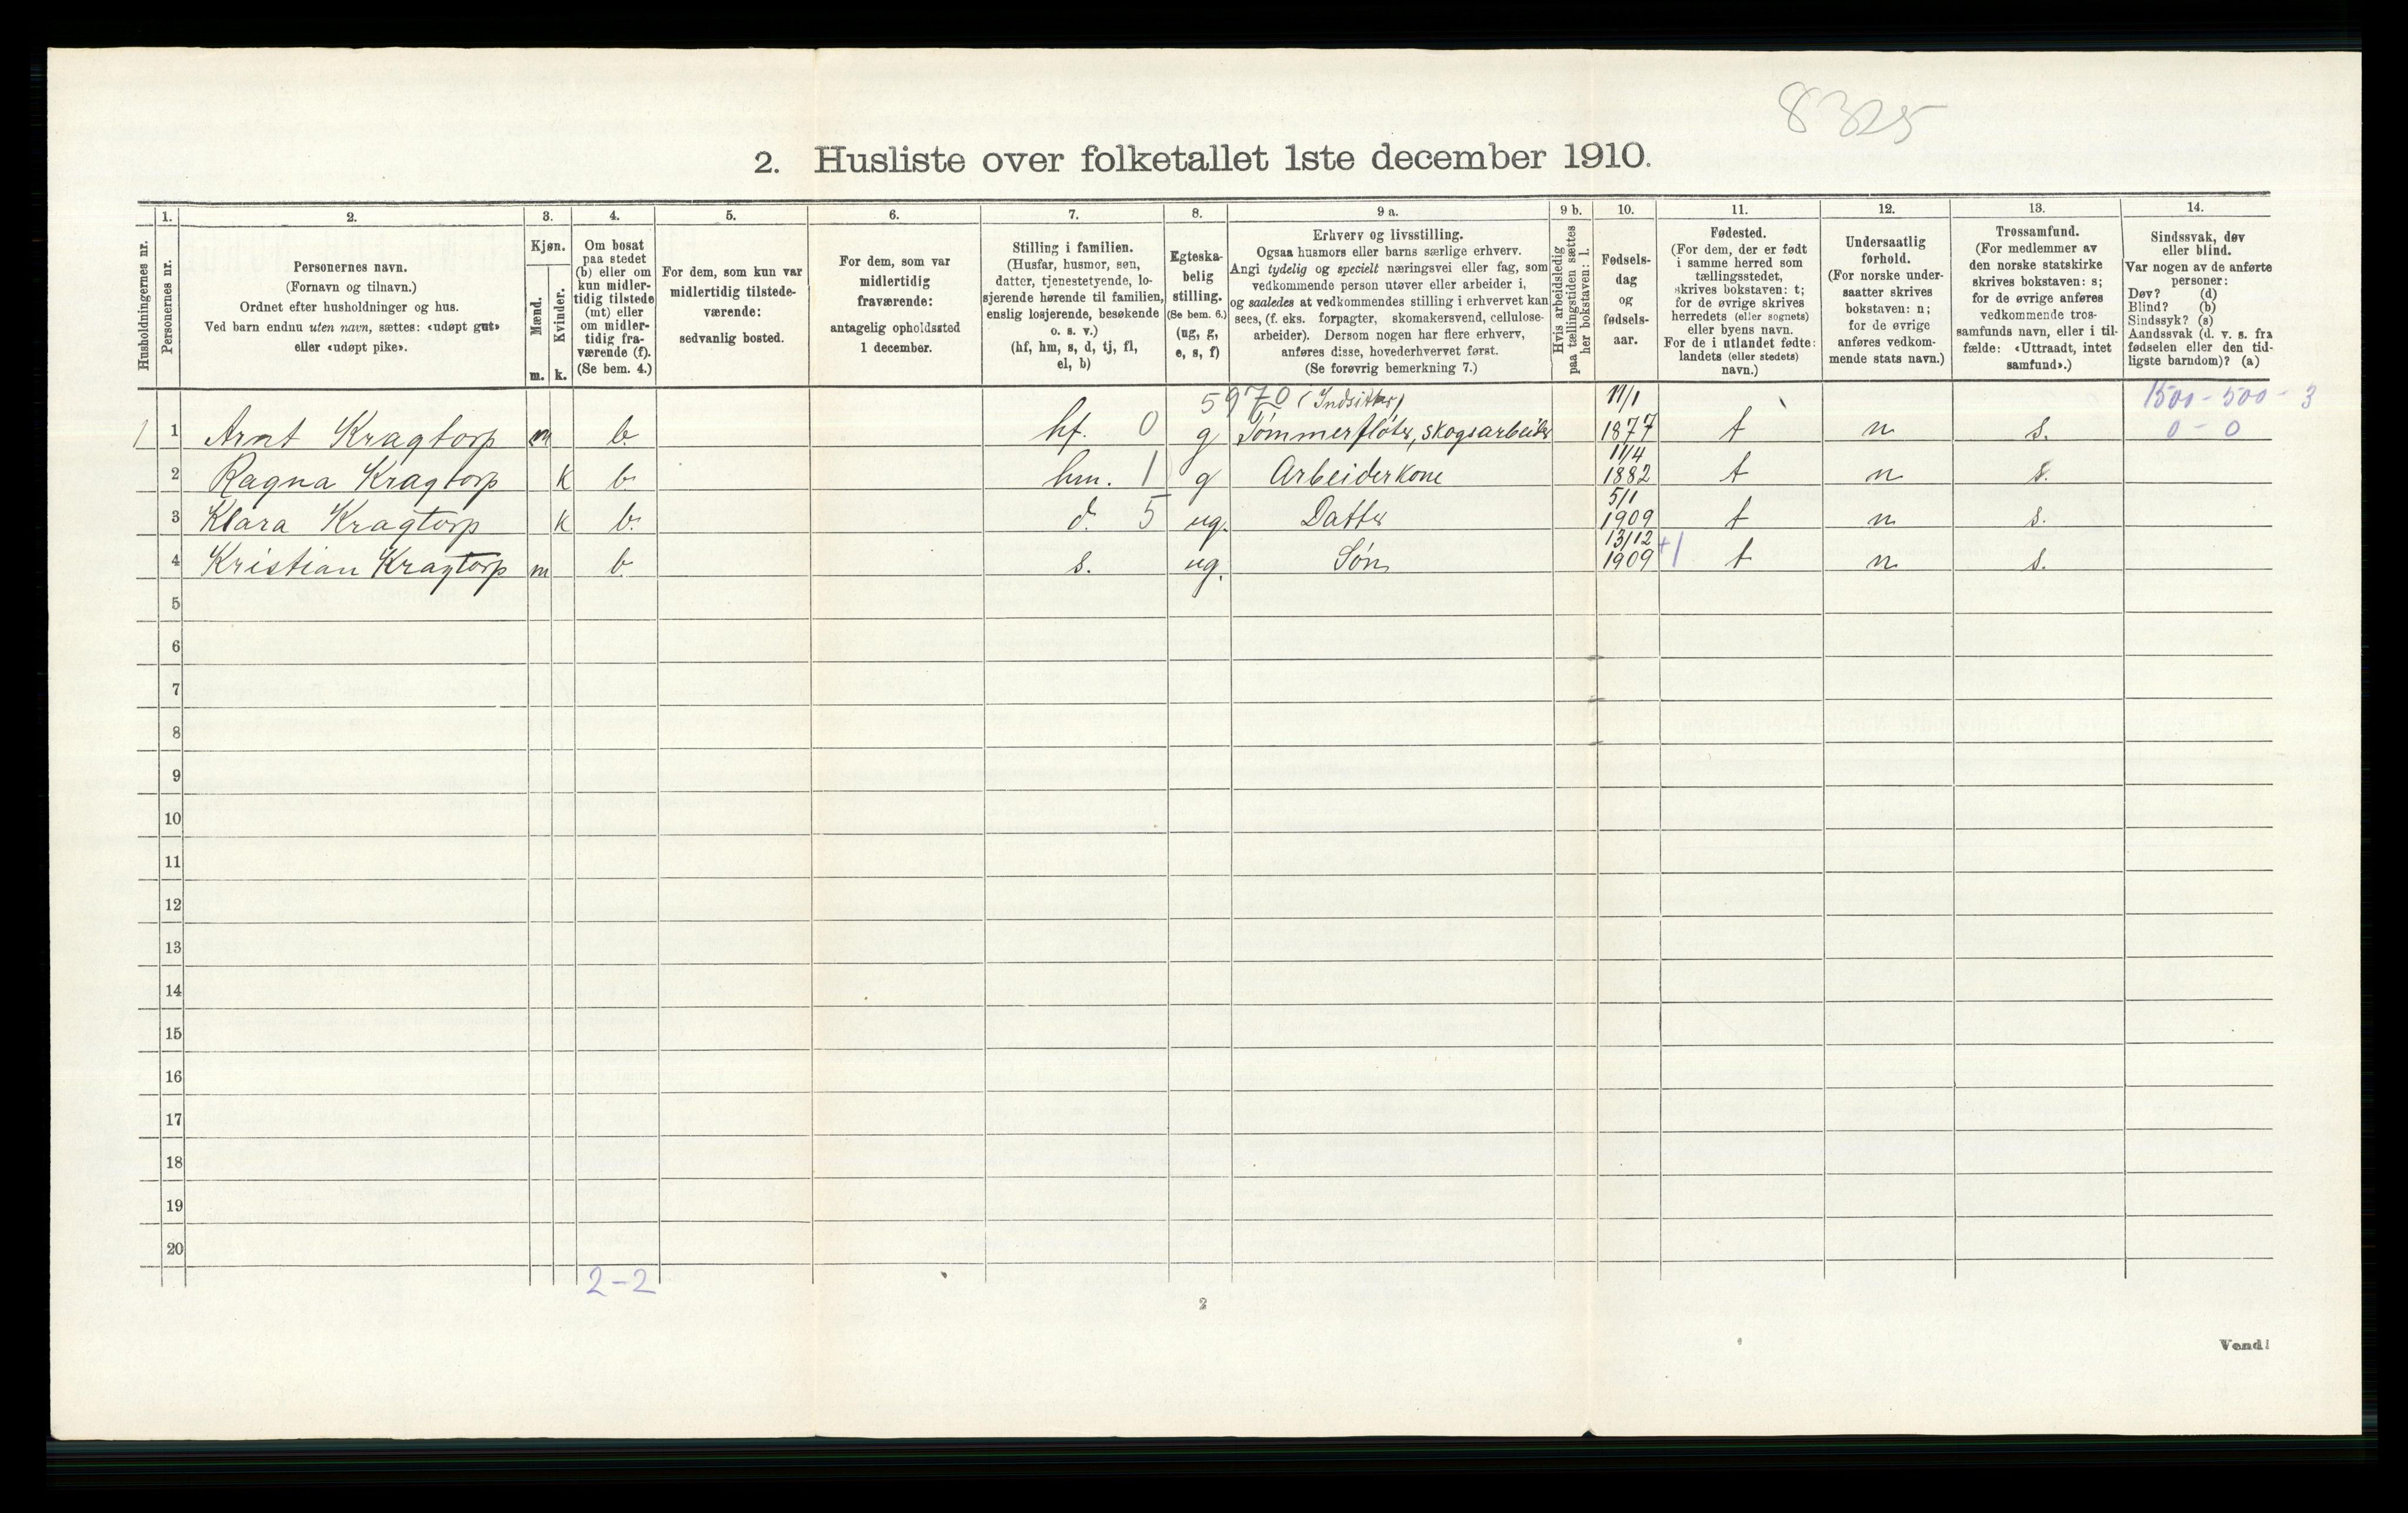 8325
2. Husliste over folketallet 1ste december 1910.
Husholdningernes nr.
1. 2. 3. 4. 5. 6. 7. 8. 9 a. 9 b. 10. 11. 12. 13. 14.
Personernes nr.
Personernes navn.
(Fornavn og tilnavn.)
Ordnet efter husholdninger og hus.
Ved barn endnu uten navn, sættes: «udøpt gut»
eller «udøpt pike».
Kjøn.
Mænd.
Kvinder.
m. k.
Om bosat
paa stedet
(b) eller om
kun midler-
tidig tilstede
(mt) eller
om midler-
tidig fra-
værende (f).
(Se bem. 4.)
For dem, som kun var
midlertidig tilstede-
værende:
sedvanlig bosted.
For dem, som var
midlertidig
fraværende:
antagelig opholdssted
1 december.
Stilling i familien.
(Husfar, husmor, søn,
datter, tjenestetyende, lo-
sjerende hørende til familien,
enslig losjerende, besøkende
o. s. v.)
(hf, hm, s, d, tj, fl,
el, b)
Egteska-
belig
stilling.
(Se bem. 6.)
(ug, g,
e, s, f)
Erhverv og livsstilling.
Ogsaa husmors eller barns særlige erhverv.
Angi tydelig og specielt næringsvei eller fag, som
vedkommende person utøver eller arbeider i,
og saaledes at vedkommendes stilling i erhvervet kan
sees, (f. eks. forpagter, skomakersvend, cellulose-
arbeider). Dersom nogen har flere erhverv,
anføres disse, hovederhvervet først.
(Se forøvrig bemerkning 7.)
Hvis arbeidsledig
paa tællingstiden sættes
her bokstaven: l.
Fødsels-
dag
og
fødsels-
aar.
Fødested.
(For dem, der er født
i samme herred som
tællingsstedet,
skrives bokstaven: t;
for de øvrige skrives
herredets (eller sognets)
eller byens navn.
For de i utlandet fødte:
landets (eller stedets)
navn.)
Undersaatlig
forhold.
(For norske under-
saatter skrives
bokstaven: n;
for de øvrige
anføres vedkom-
mende stats navn.)
Trossamfund.
(For medlemmer av
den norske statskirke
skrives bokstaven: s;
for de øvrige anføres
vedkommende tros-
samfunds navn, eller i til-
fælde: «Uttraadt, intet
samfund».)
Sindssvak, døv
eller blind.
Var nogen av de anførte
personer:
Døv? (d)
Blind? (b)
Sindssyk? (s)
Aandssvak (d. v. s. fra
fødselen eller den tid-
ligste barndom)? (a)
5970 (Indsitter) 11/1 1500 - 500 - 3
1 1 Arnt Kragtorp m b. hf. 0 g Tømmerfløter, skogsarbeider 1877 t n s. 0 - 0
11/4
2 Ragna Kragtorp k b. hm. 1 g Arbeiderkone 1882 t n s.
5/1
3 Klara Kragtorp k b. d. 5 ug. Datter 1909 t n s.
13/12
4 Kristian Kragtorp m b s. ug. Søn 1909 +1 t n s.
5
6
7
8
9
10
11
12
13
14
15
16
17
18
19
20
2-2
2
Vend!